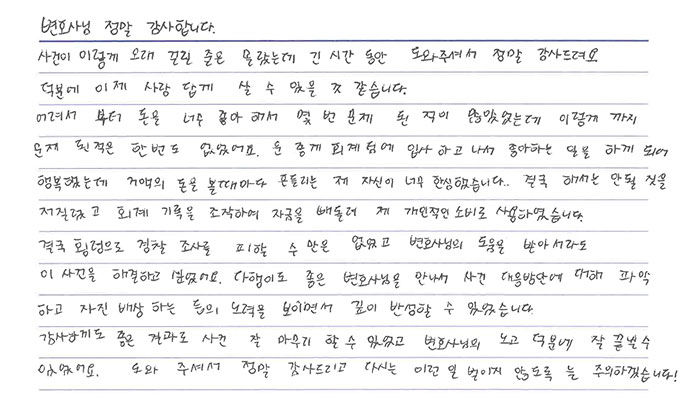 변호사님 정말 감사합니다.
사건이 이렇게 오래 걸릴 줄은 몰랐는데 긴 시간 동안 도와주셔서 정말 감사드려요
덕분에 이제 사람 답게 살 수 있을 것 같습니다.
어려서 부터 돈을 너무 좋아 해서 몇 번 문제 된 적이 많았었는데 이렇게 까지
문제 된적은 한번도 없었어요. 운 좋게 회계팀에 입사 하고 나서 좋아하는 일을 하게 되어
행복했는데 거액의 돈을 볼때마다 흔들리는 제 자신이 너무 한심했습니다.. 결국 해서는 안될 짓을
저질렀고 회계 기록을 조작하여 자금을 빼돌려 제 개인적인 소비로 사용하였습니다.
결국 횡령으로 경찰 조사를 피할 수 만은 없었고 변호사님의 도움을 받아서라도
이 사건을 해결하고 싶었어요. 다행이도 좋은 변호사님을 만나서 사건 대응방안에 대해 파악
하고 자진 배상 하는 등의 노력을 보이면서 깊이 반성할 수 있었습니다.
감사하게도 좋은 결과로 사건 잘 마무리 할 수 있었고 변호사님의 노고 덕분에 잘 끝낼 수
있었어요. 도와 주셔서 정말 감사드리고 다시는 이런 일 벌이지 않도록 늘 주의하겠습니다!